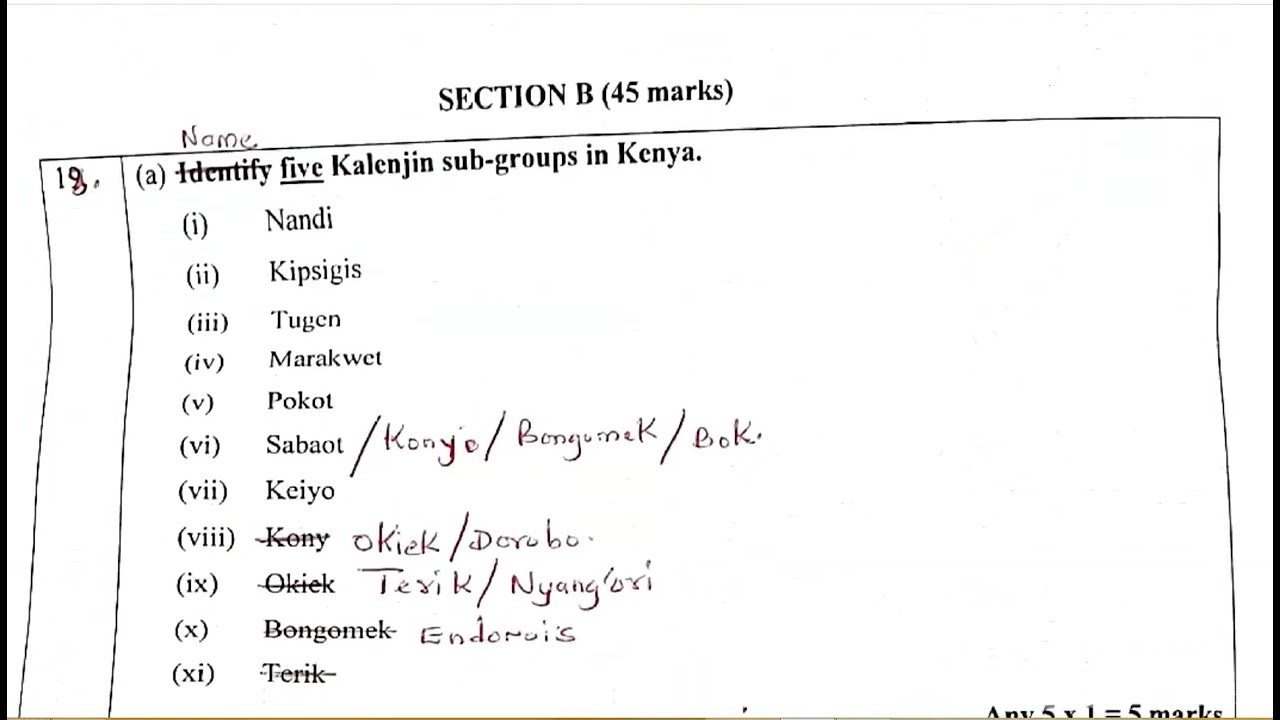 SECTION B (45 marks)
Name
18. (a) Identify five Kalenjin sub-groups in Kenya.
(i) Nandi
(ii) Kipsigis
(iii) Tugen
(iv) Marakwet
(v) Pokot
(vi) Sabaot /Konyo/ Bongomek / Bok.
(vii) Keiyo
(viii) Kony Okiek /Dorobo.
(ix) Okiek Terik/ Nyang'ori
(x) Bongomek Endorois
(xi) Terik
Any 5 x 1 = 5 marks